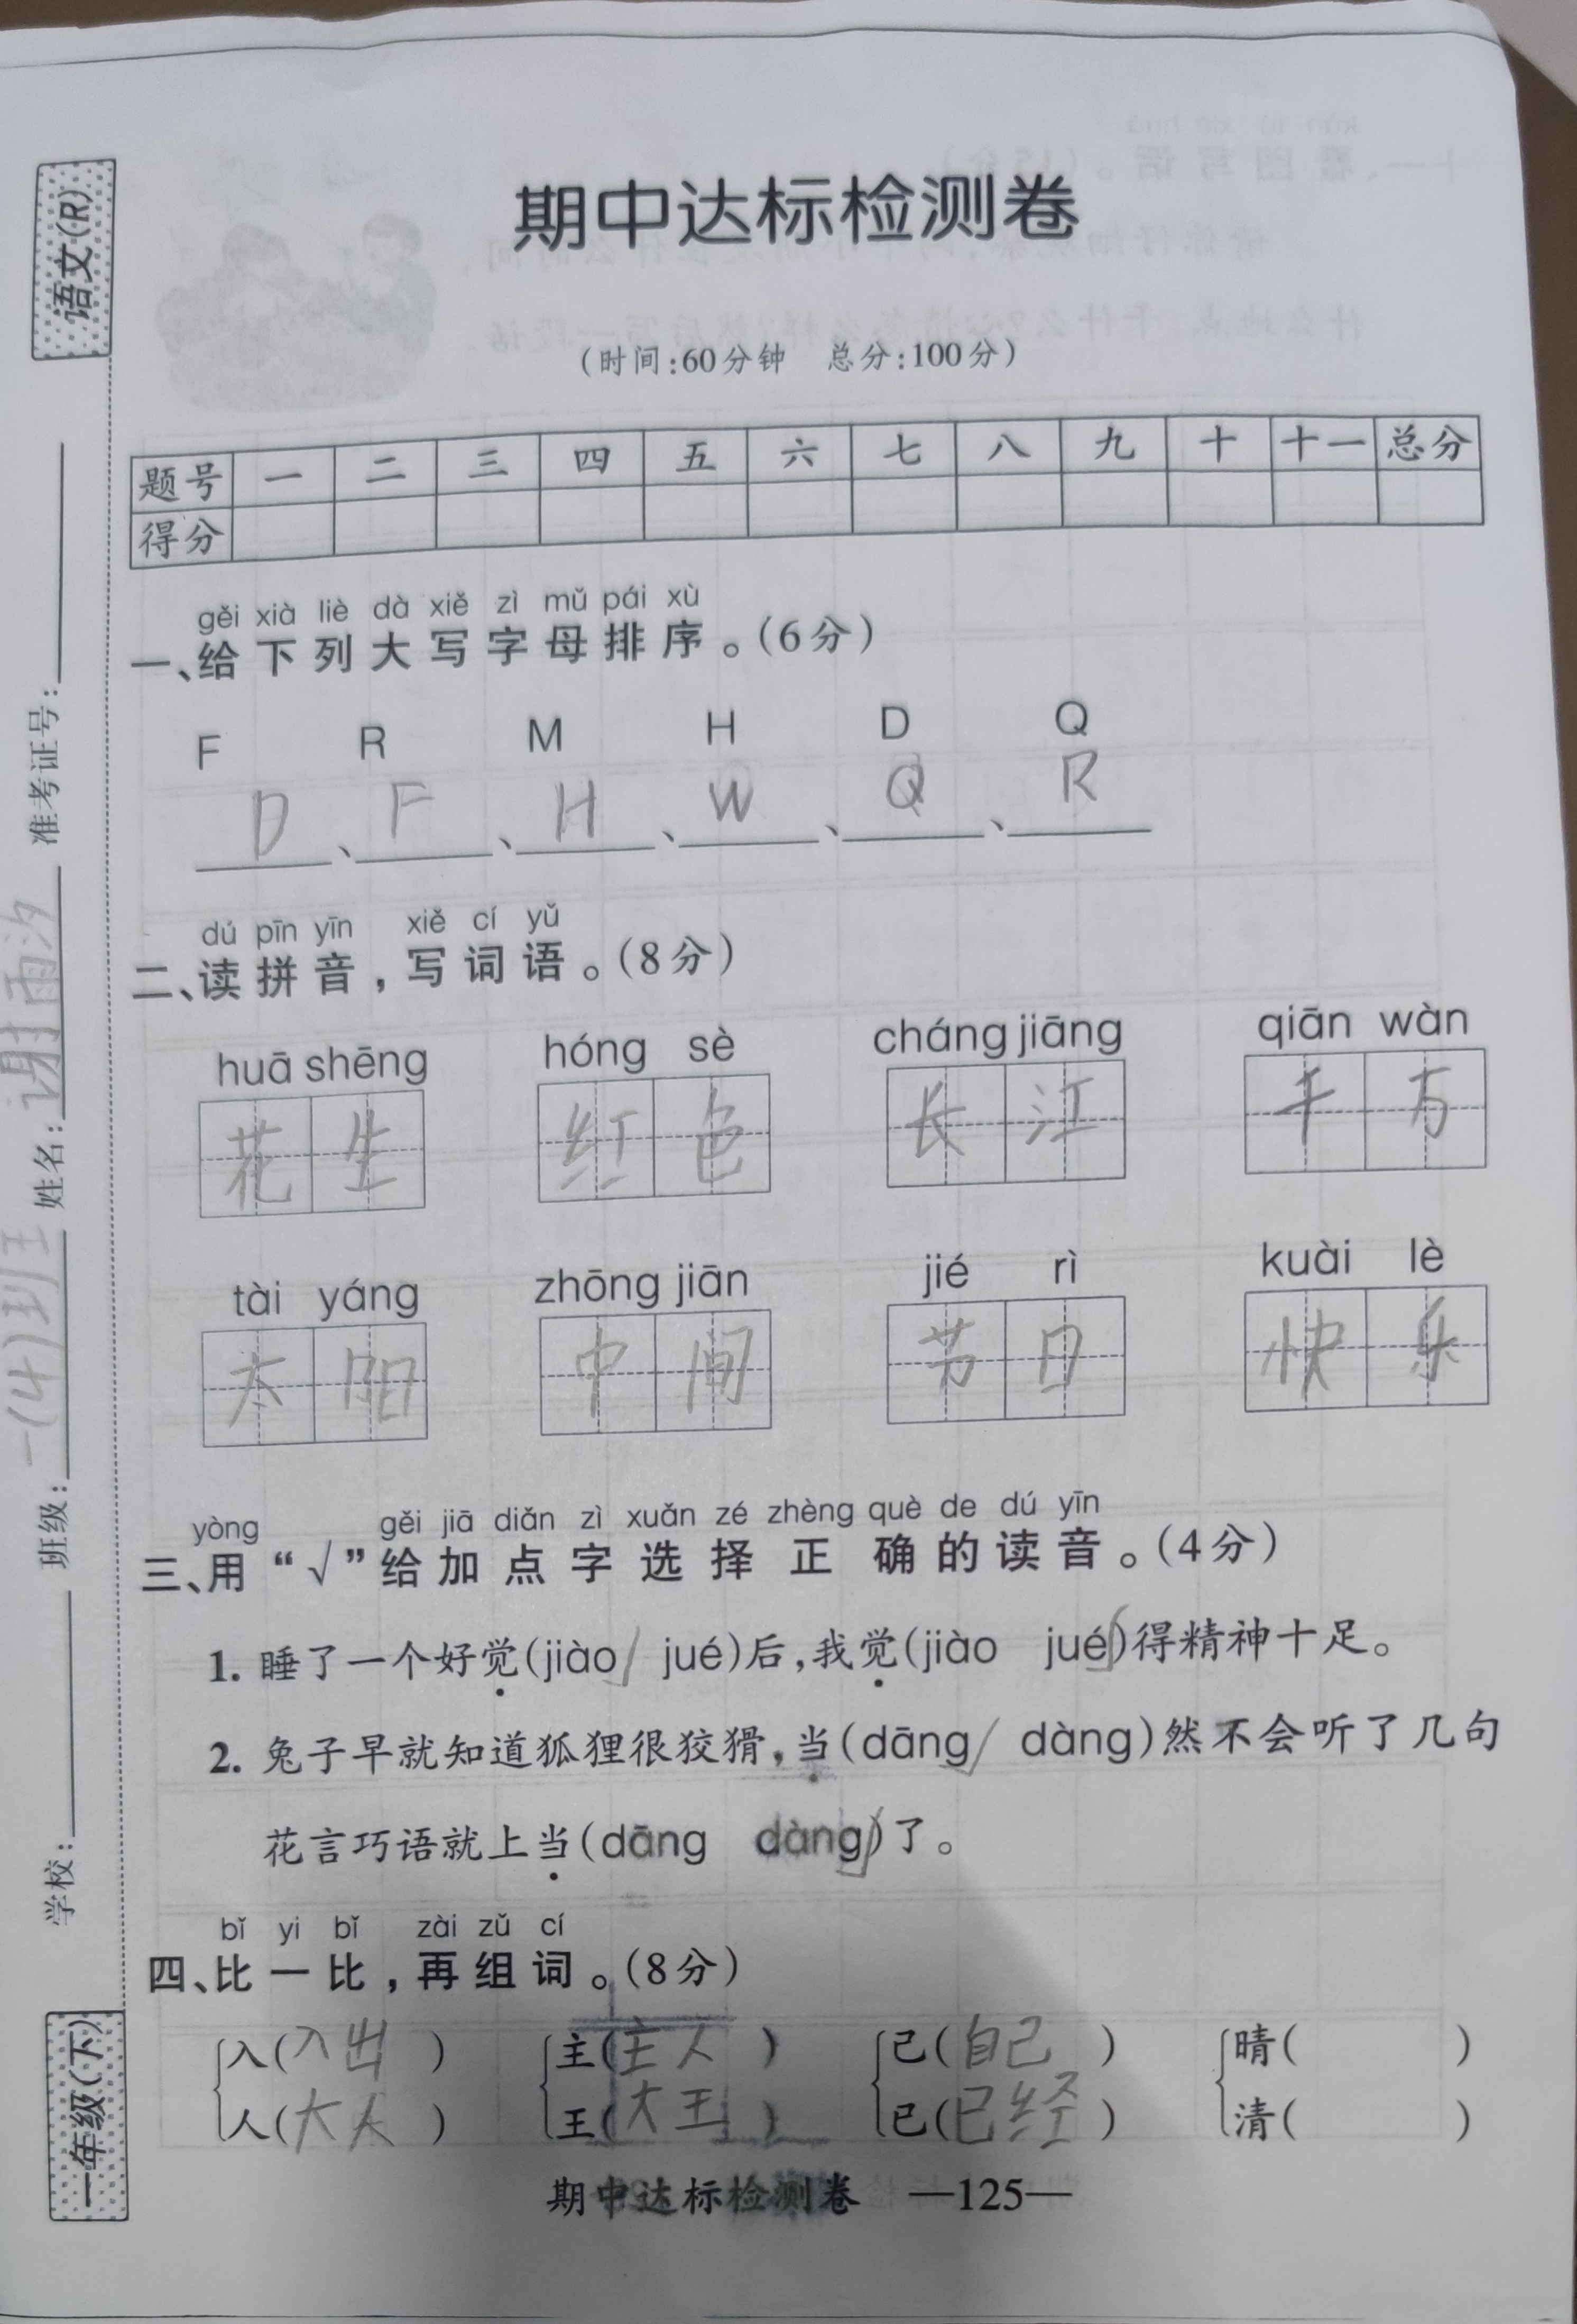 语文(R)
期中达标检测卷
(时间:60分钟 总分:100分)
题号 一 二 三 四 五 六 七 八 九 十 十一 总分
得分
gěi xià liè dà xiě zì mǔ pái xù
一、给下列大写字母排序。(6分)
F R M H D Q
D、F、H、W、Q、R
dú pīn yīn xiě cí yǔ
二、读拼音,写词语。(8分)
huā shēng hóng sè cháng jiāng qiān wàn
花生 红色 长江 千万
tài yáng zhōng jiān jié rì kuài lè
太阳 中间 节日 快乐
yòng gěi jiā diǎn zì xuǎn zé zhèng què de dú yīn
三、用“√”给加点字选择正确的读音。(4分)
1. 睡了一个好觉(jiào√ jué)后,我觉(jiào jué√)得精神十足。
2. 兔子早就知道狐狸很狡猾,当(dāng√ dàng)然不会听了几句
花言巧语就上当(dāng dàng√)了。
bǐ yi bǐ zài zǔ cí
四、比一比,再组词。(8分)
入(入出) 主(主人) 己(自己) 晴( )
人(大人) 王(大王) 已(已经) 清( )
期中达标检测卷 —125—
准考证号:
姓名:谢雨汐
班级:一(4)班
学校:
一年级(下)